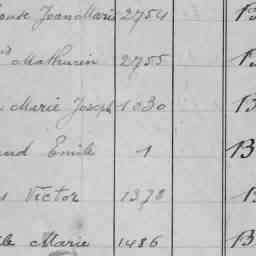 Jean Marie 2754 B
Mathurin 2755 B
Marie Joseph 1030 B
Emile 1 B
Victor 1378 B
Marie 1486 B